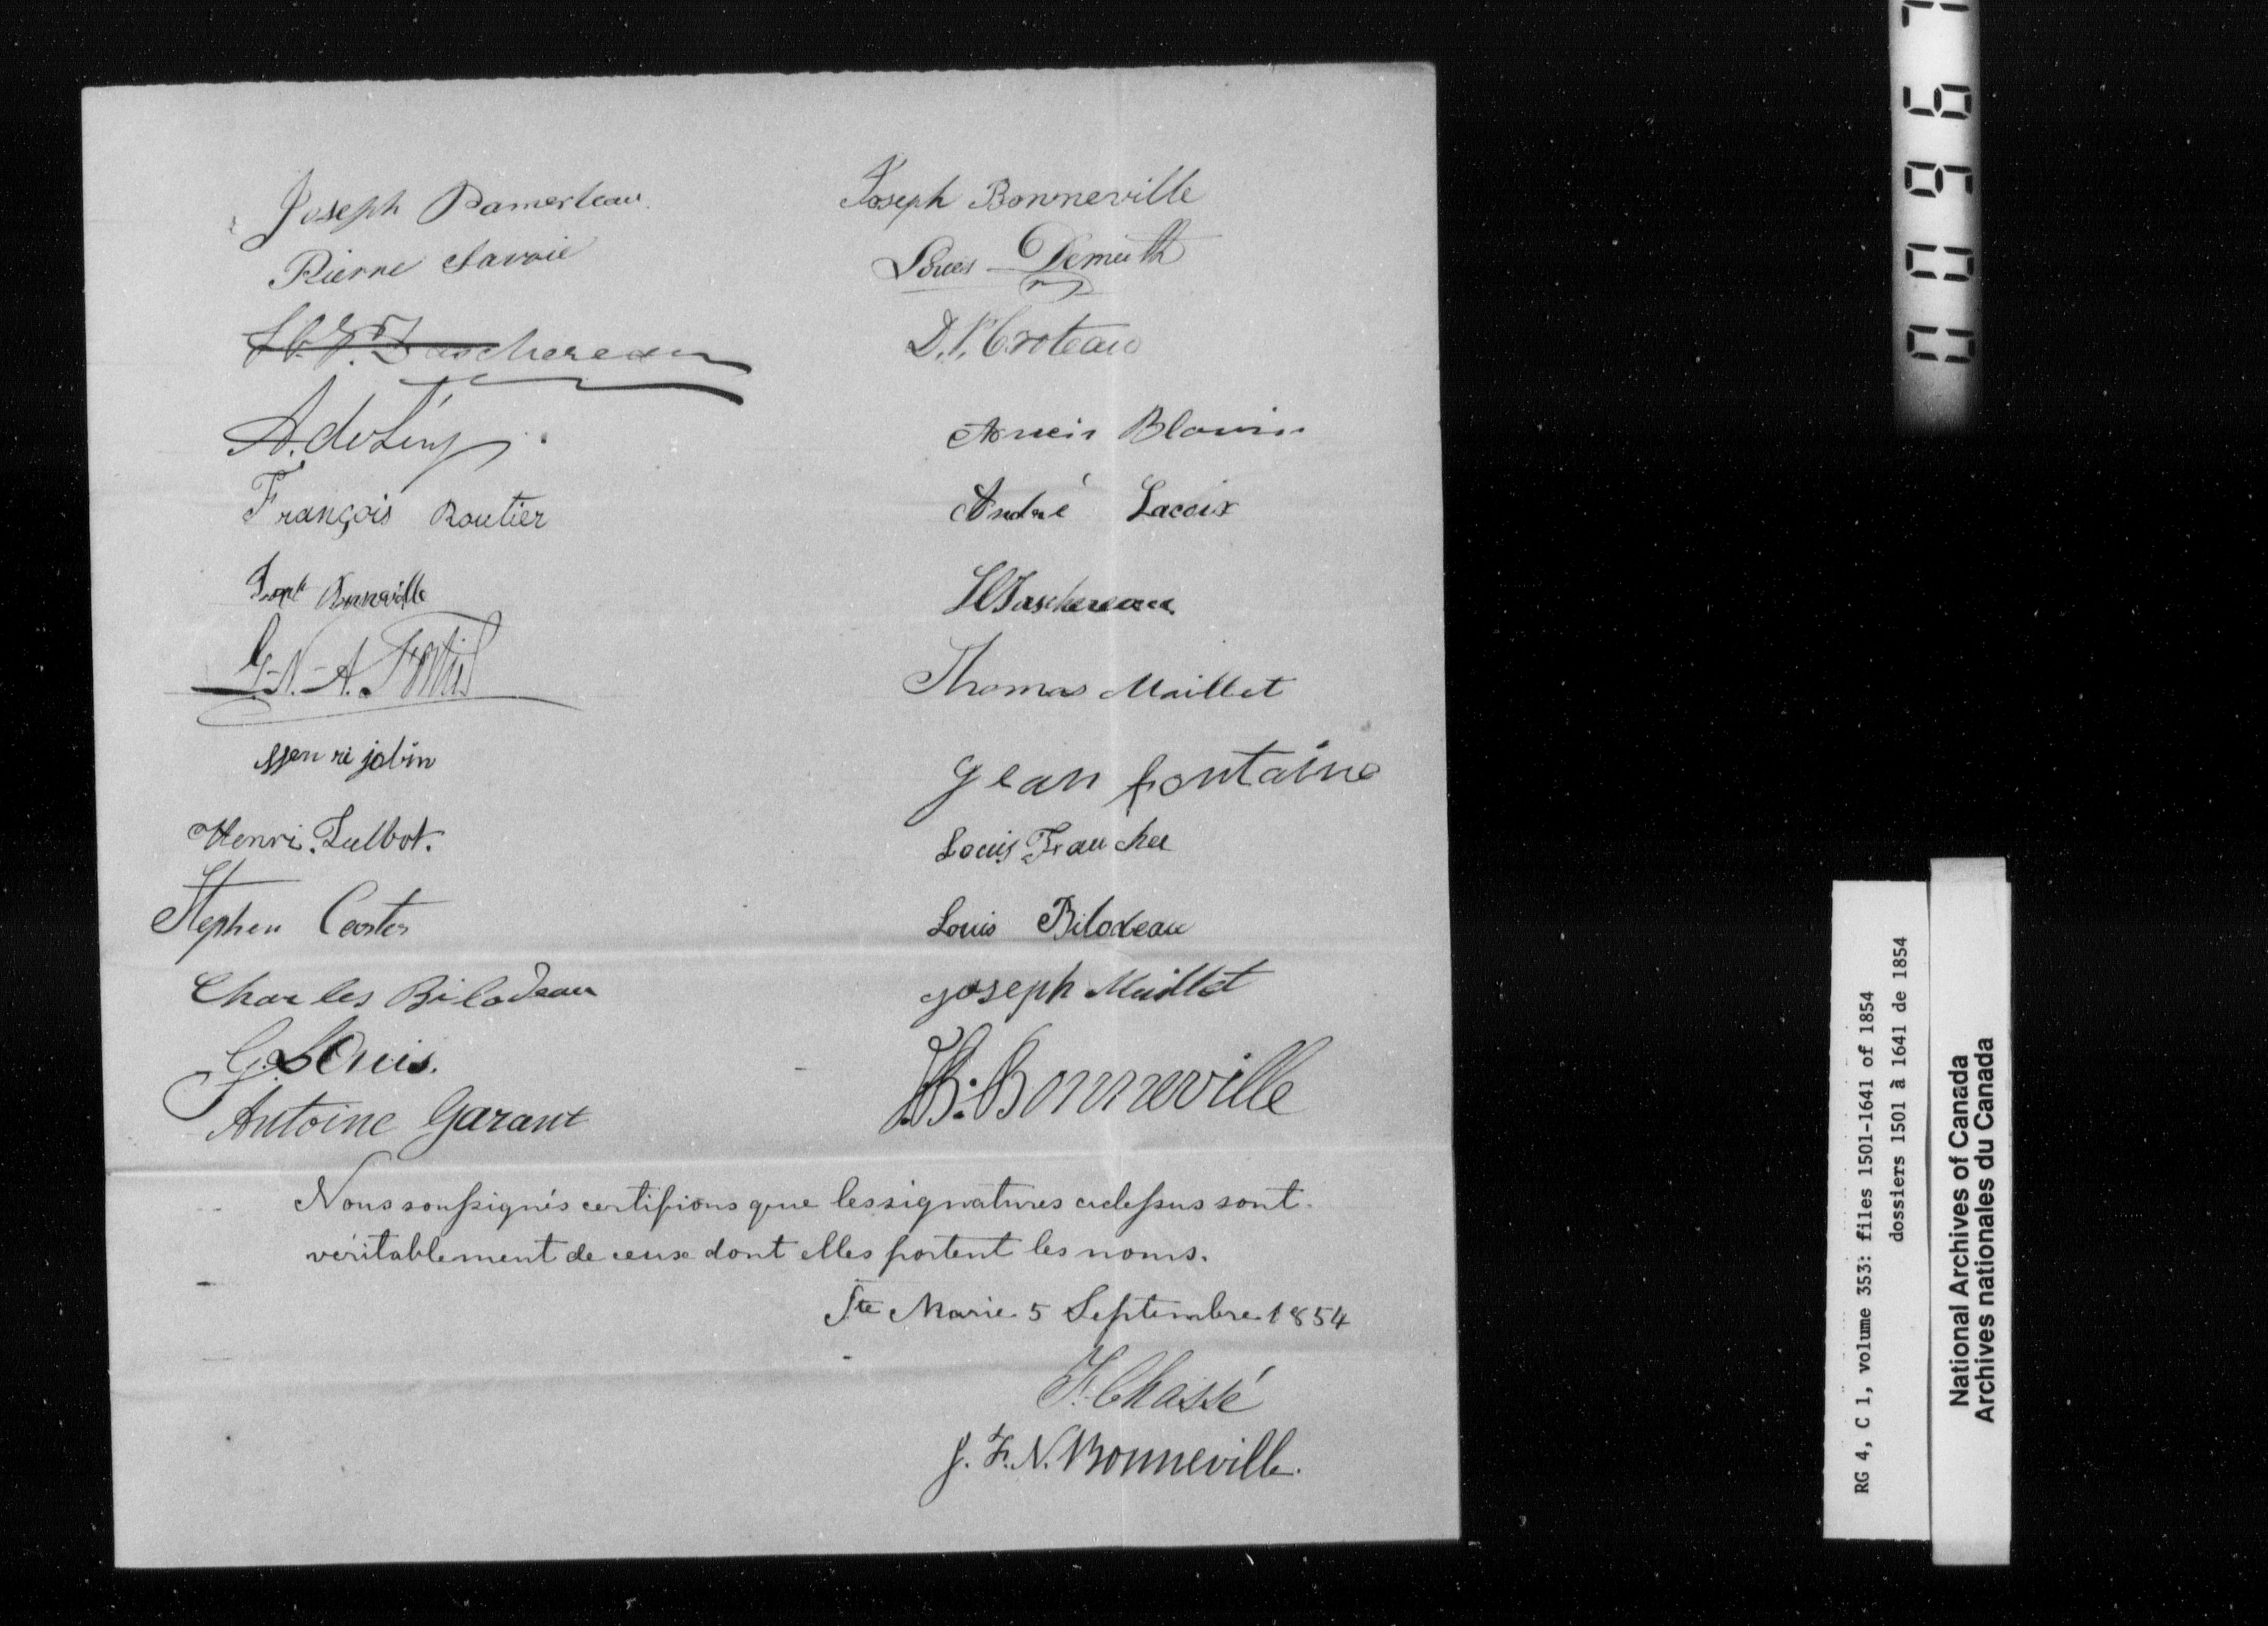 Joseph Pamerleau
Pierre Savoie
Taschereau
A. de Léry
François Routier
Bonneville
G.-N.-A. Fortier
Henri jobin
Henri. Tulbot.
Stephen Coster
Charles Bilodeau
G. LOuis.
Antoine Garant
Joseph Bonneville
Louis Demuth
D. P. Croteau
Blouin
André Lacoix
Taschereau
Thomas Maillet
jean fontaine
Louis Fraucher
Louis Bilodeau
joseph Maillet
JB: Bonneville
Nous soussignés certifions que les signatures cidessus sont
véritablement de ceux dont elles portent les noms.
Ste Marie 5 Septembre 1854
F. Chassé
J. F. N. Bonneville.
RG 4, C 1, volume 353: files 1501-1641 of 1854
dossiers 1501 à 1641 de 1854
National Archives of Canada
Archives nationales du Canada